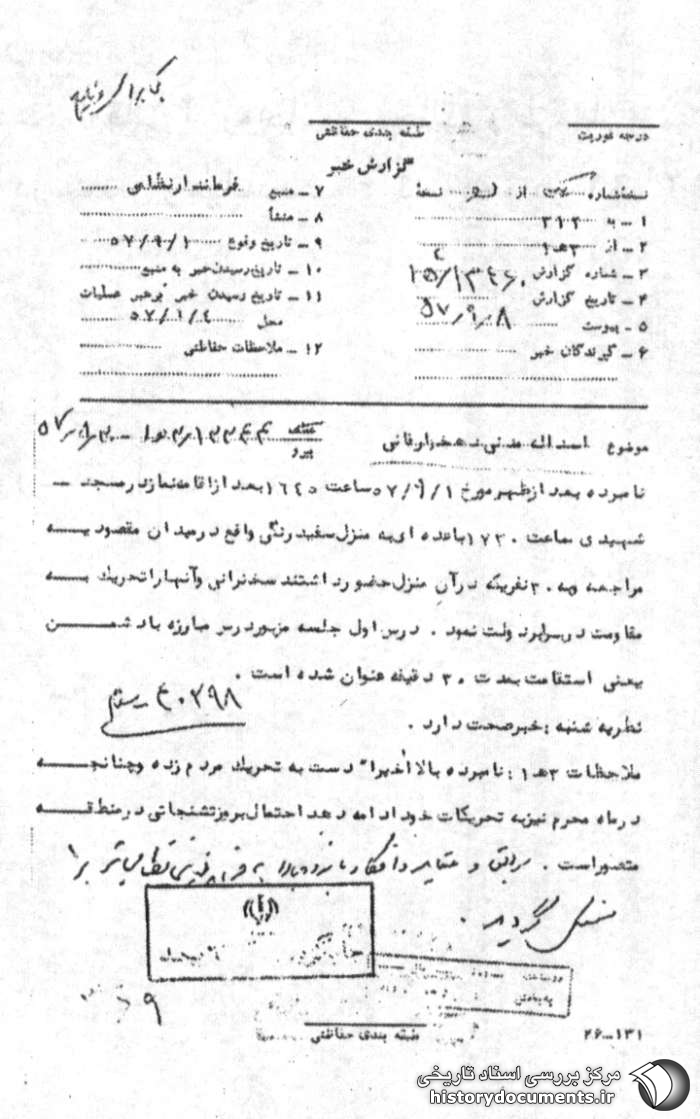 درجه فوریت
طبقه بندی حفاظتی
گزارش خبر
نسخه شماره از نسخه
۱ - به ۳۱۲
۲ - از ۳ هـ ۱
۳ - شماره گزارش
۴ - تاریخ گزارش ۵۷/۹/۸
۵ - پیوست
۶ - گیرندگان خبر
۷ - منبع فرماندار نظامی
۸ - منشأ
۹ - تاریخ وقوع ۵۷/۹/۱
۱۰ - تاریخ رسیدن خبر به منبع
۱۱ - تاریخ رسیدن خبر به رهبر عملیات
محل ۵۷/۹/۴
۱۲ - ملاحظات حفاظتی
موضوع اسداله مدنی دهخوارقانی
پیرو
نامبرده بعد از ظهر مورخ ۵۷/۹/۱ ساعت ۱۶۴۵ بعد از اقامه نماز در مسجد -
شهیدی ساعت ۱۷۳۰ با عده ای به منزل سفید رنگی واقع در میدان مقصودیه
مراجعه و به ۳۰ نفریکه در آن منزل حضور داشتند سخنرانی و آنها را تحریک به
مقاومت در برابر دولت نمود . درس اول جلسه مزبور درس مبارزه با دشمن
یعنی استقامت بمدت ۳۰ دقیقه عنوان شده است .
نظریه شنبه : خبر صحت دارد .
ملاحظات ۳ هـ ۱ : نامبرده بالا اخیرا" دست به تحریک مردم زده و چنانچه
در ماه محرم نیز به تحریکات خود ادامه دهد احتمال بروز تشنجاتی در منطقه
متصور است .
گردید .
طبقه بندی حفاظتی
۲۶-۱۳۱
مرکز بررسی اسناد تاریخی
historydocuments.ir